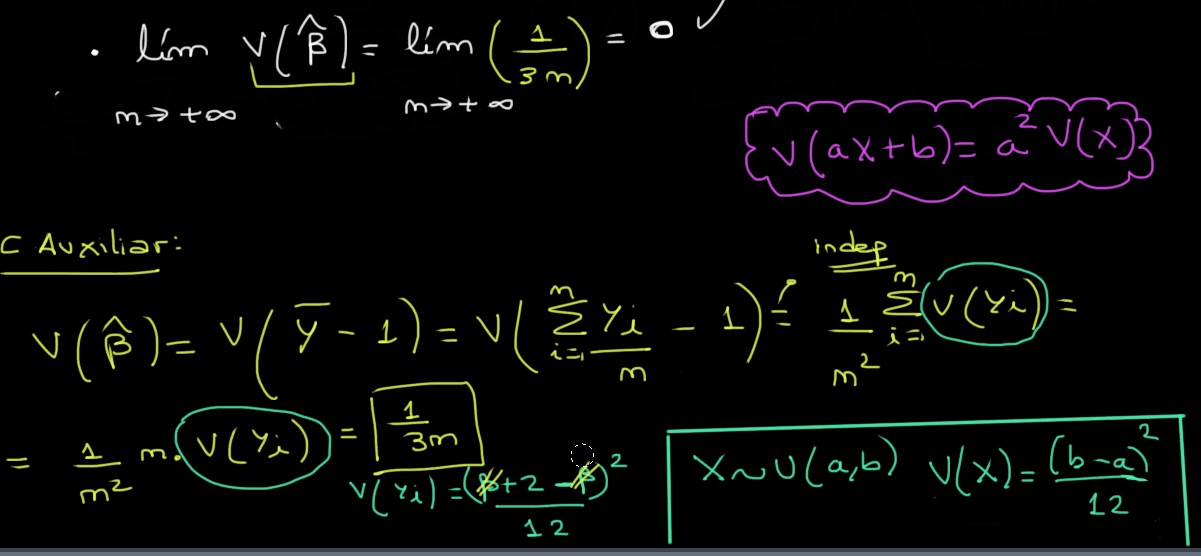 • lím V(β̂) = lím (1/3m) = 0 ✓
m→+∞ m→+∞
V(aX+b) = a² V(X)
C Auxiliar:
indep
V(β̂) = V(ȳ - 1) = V(∑_{i=1}^{m} Yi/m - 1) = 1/m² ∑_{i=1}^{m} V(Yi) =
= 1/m² m. V(Yi) = 1/3m
V(Yi) = (β+2-β)²/12
X~U(a,b) V(X) = (b-a)²/12